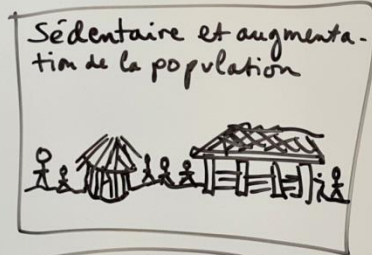 Sédentaire et augmenta-
tion de la population